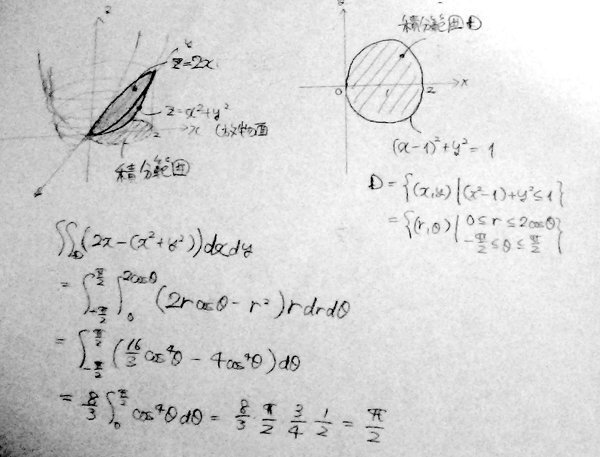 z
y
z=2x
z=x²+y²
x (放物面
積分範囲
y
積分範囲D
0 1 2 x
(x-1)²+y²=1
D={(x,y)|(x²-1)+y²≤1}
={(r,θ)|0≤r≤2cosθ
-π/2≤θ≤π/2}
∬_D(2x-(x²+y²))dxdy
=∫_{-π/2}^{π/2}∫_0^{2cosθ}(2rcosθ-r²)rdrdθ
=∫_{-π/2}^{π/2}(16/3 cos⁴θ-4cos⁴θ)dθ
=8/3∫_0^{π/2}cos⁴θdθ=8/3 π/2 3/4 1/2=π/2